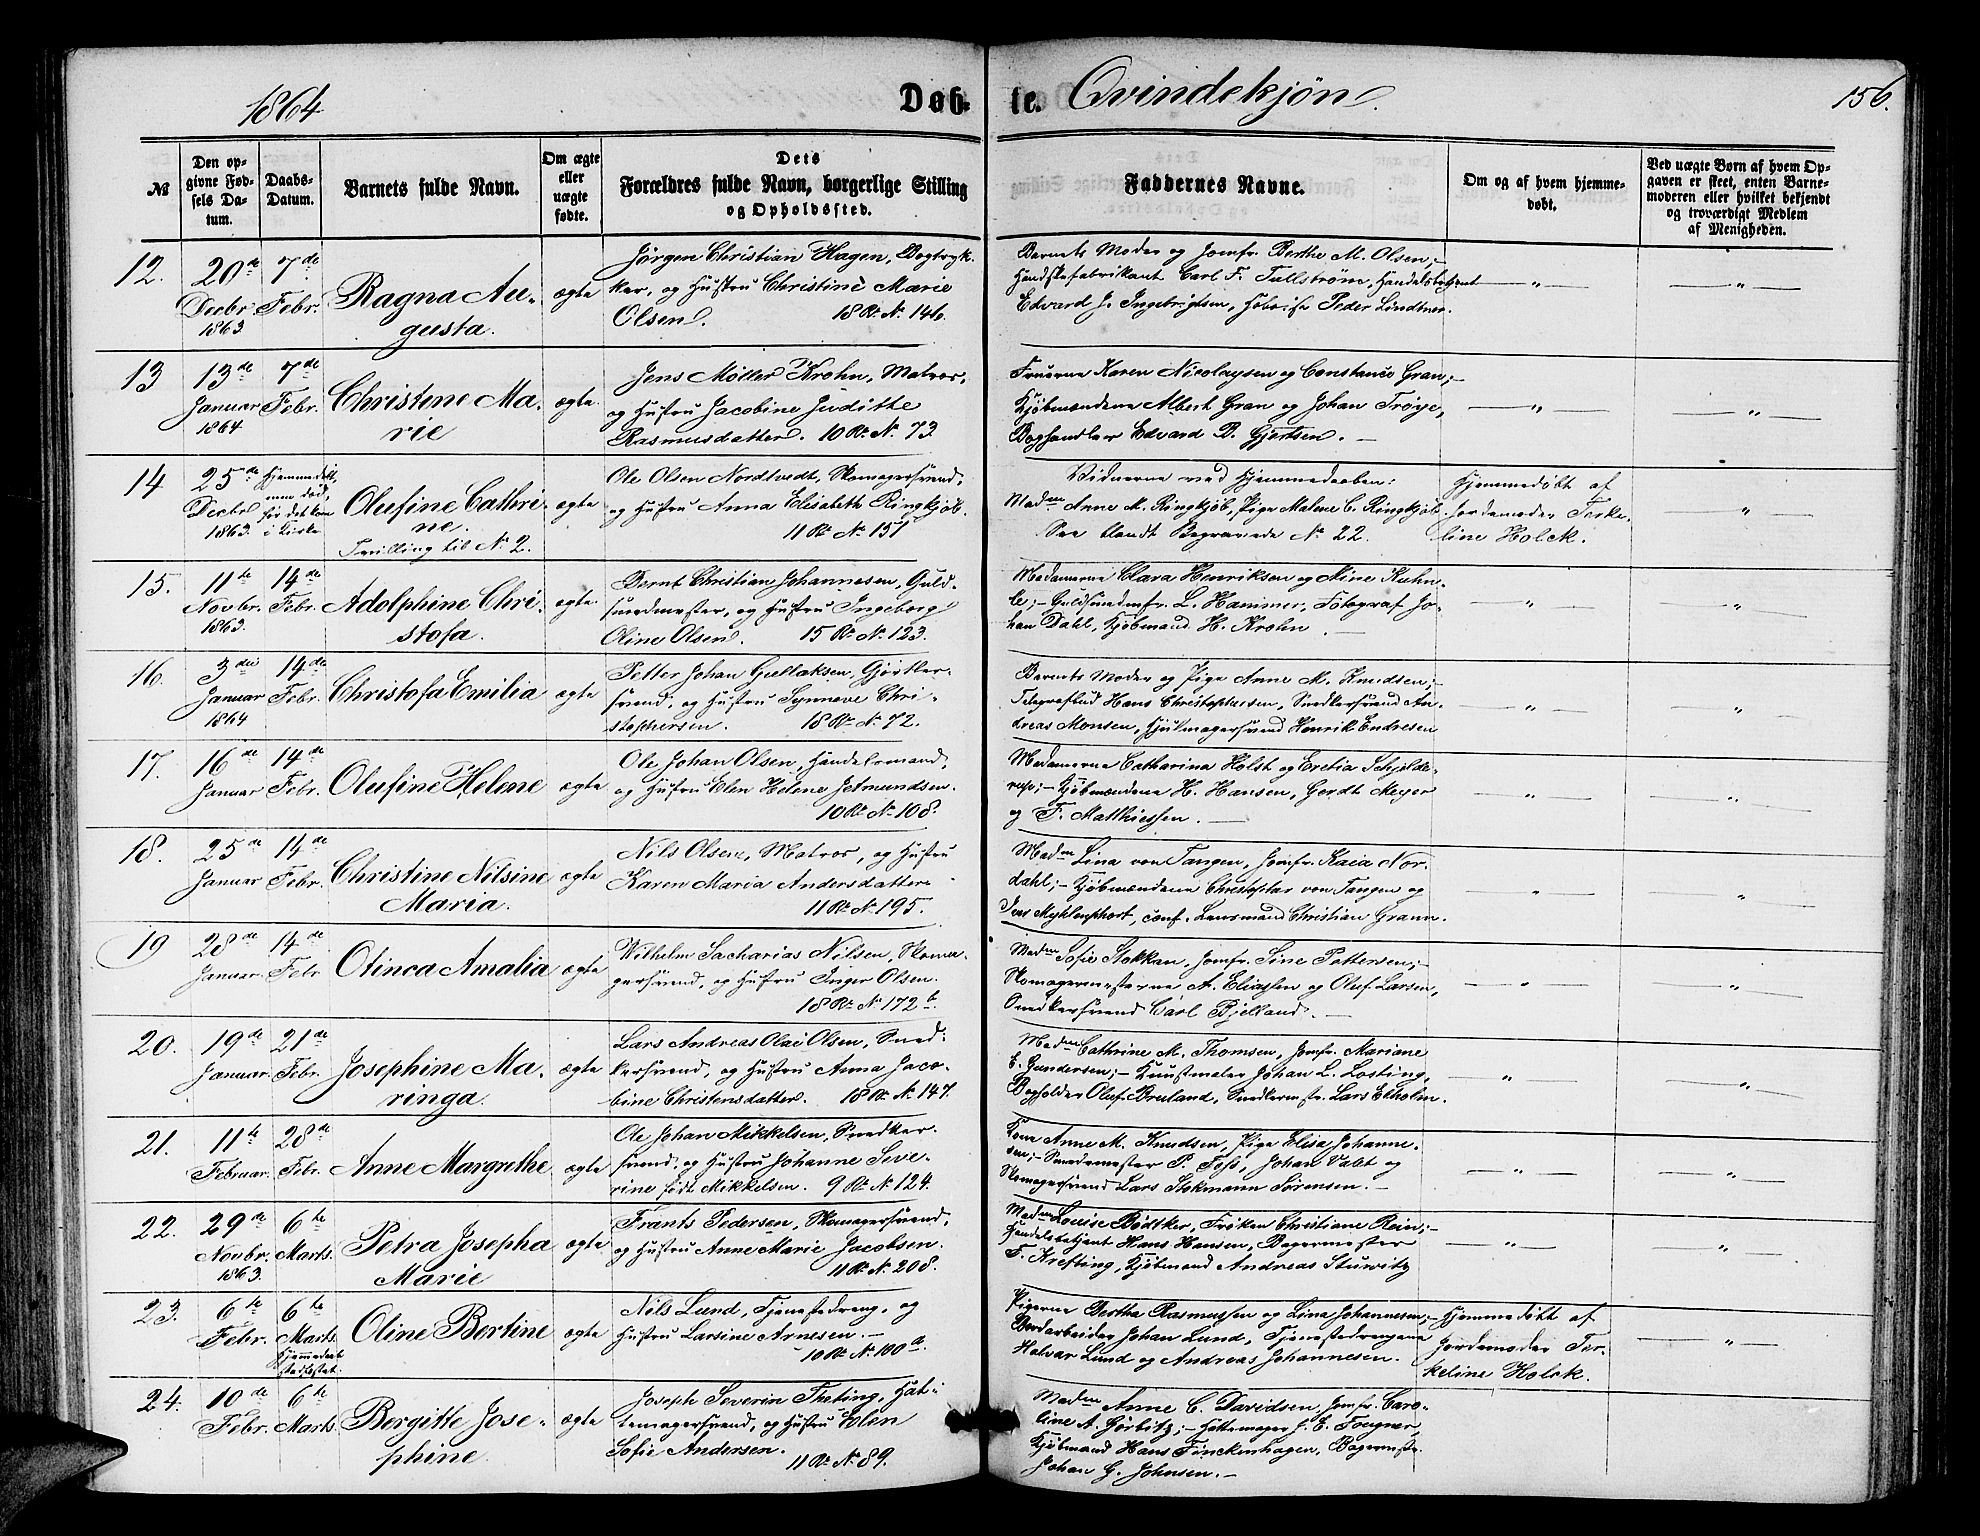 1864
Døb-
te. Qvindekjøn.
156.
№
Den op-
givne Fød-
sels Da-
tum.
Daabs-
Datum.
Barnets fulde Navn.
Om ægte
eller
uægte
fødte.
Dets
Forældres fulde Navn, borgerlige Stilling
og Opholdssted.
Faddernes Navne.
Om og af hvem hjemme-
døbt.
Ved uægte Børn af hvem Op-
gaven er skeet, enten Barne-
moderen eller hvilket bekjendt
og troværdigt Medlem
af Menigheden.
12.
20de
Decbr.
1863.
7de
Febr.
Ragna Au-
gusta.
ægte
Jørgen Christian Hagen, Bogtryk-
ker, og Hustru Christine Marie
Olsen. 18 R. N. 146.
Barnets Moder og Jomfr. Berthe M. Olsen;-
Handskefabrikant Carl F. Tullstrøm, Handelsbetjent
Edvard J. Ingebrigtsen, Hoboist Peder Lindtner.
— „ —
— „ —
13
13de
Januar
1864
7de
Febr.
Christene Ma-
rie
ægte.
Jens Møller Krohn, Matros,
og Hustru Jacobine Judithe
Rasmusdatter. 10 R. N. 73.
Fruerne Karen Nicolaysen og Constance Gran;-
Kjøbmændene Albert Gran og Johan Trøye,
Boghandler Edvard B. Gjertsen. —
— „ —
— „ —
14
25de
Decbr
1863.
Hjemmedøbt,
men død,
før det kom
i Kirke
Olufine Cathri-
ne.
Tvilling til N. 2.
ægte
Ole Olsen Nordtvedt, Skomagersvend,
og Hustru Anna Elisabeth Ringkjøb.
11 R. N. 157
Vidnerne ved Hjemmedaaben:
Madm Anne M. Ringkjøb, Pige Malene C. Ringkjøb.
See blandt Begravede No 22.
Hjemmedøbt af
Jordemoder Terke-
line Holck.
— „ —
15.
11te
Novbr.
1863.
14de
Febr.
Adolphine Chri-
stofa.
ægte.
Bernt Christian Johannesen, Guld-
smedmester, og Hustru Ingeborg
Oline Olsen. 15 R. N. 123.
Madamerne Clara Henriksen og Nine Kuhn-
le;- Guldsmedmstr. L. Hammer, Fotograf Jo-
han Dahl, Kjøbmand H. Krohn. —
— „ —
— „ —
16.
3die
Januar
1864
14de
Febr.
Christofa Emilia
ægte
Petter Johan Gullaksen, Gjørtler-
svend, og Hustru Synneve Chri-
stophersen. 18 R. N. 72.
Barnets Moder og Pige Anne M. Knudsen;-
Telegrafbud Hans Christophersen, Snedkersvend An-
dreas Monsen, Hjulmagersvend Henrik Endresen
— „ —
— „ —
17.
16de
Januar
14de
Febr.
Olufine Helene
ægte
Ole Johan Olsen, Handelsmand,
og Hustru Elen Helene Jetmundsen.
10 R. N. 108.
Madamerne Catharina Holst og Eretia Schjelde-
rup;- Kjøbmændene H. Hansen, Gerdt Meyer
og F. Matthiessen. —
— „ —
— „ —
18.
25de
Januar
14de
Febr.
Christine Nilsine
Maria.
ægte
Nils Olsen, Matros, og Hustru
Karen Maria Andersdatter.
11 R. N. 195.
Madm Lina von Tangen, Jomfr. Kaia Nor-
dahl;- Kjøbmændene Christopher von Tangen og
Jens Myhlenphort, const. Lensmand Christian Grann.
— „ —
— „ —
19
28de
Januar.
14de
Febr
Otinca Amalia
ægte
Wilhelm Sacharias Nilsen, Skoma-
gersvend, og Hustru Inger Olsen.
18 R. N. 172 b.
Madm Sofie Stokkan, Jomfr. Sine Pettersen;-
Skomagermesterne A. Eliassen og Oluf Larsen,
Snedkersvend Carl Bjelland. —
— „ —
— „ —
20.
19de
Januar.
21de
Febr.
Josephine Ma-
ringa.
ægte
Lars Andreas Olai Olsen, Sned-
kersvend, og Hustru Anna Jaco-
bine Christensdatter. 18 R. N. 147.
Madm Cathrine M. Thomsen, Jomfr. Mariane
E. Gundersen;- Kunstmaler Johan L. Losting,
Bogholder Oluf Breiland, Snedkermstr. Lars Ekholm.
„ —
— „
21.
11te
Februar.
28de
Febr.
Anne Margrethe
ægte
Ole Johan Mikkelsen, Snedker-
svend, og Hustru Johanne Seve-
rine født Mikkelsen. 9 R. N. 124.
Kone Anne M. Knudsen, Pige Elisa Johanne-
sen;- Smedemester P. Foss, Johan Valt og
Skomagersvend Lars Stokmann Sørensen. —
— „ —
— „ —
22.
29de
Novbr.
1863.
6te
Marts.
Petra Josepha
Marie
ægte
Frants Pedersen, Skomagersvend,
og Hustru Anne Marie Jacobsen.
11 R. N. 208.
Madm Louise Bødtker, Frøken Christiane Rein;-
Handelsbetjent Hans Hansen, Bagermester
F. Krefting, Kjøbmand Andreas Stuwitz
— „ —
— „ —
23.
6te
Febr.
6te
Marts.
Hjemmedaab
stadfæstet.
Oline Bertine
ægte
Nils Lund, Tjenestedreng, og
Hustru Larsine Arnesen. —
10 R. N. 100 a.
Pigerne Bertha Rasmussen og Lina Johannesen;-
Bordarbeider Johan Lund, Tjenestedrengene
Halvar Lund og Andreas Johannesen.
Hjemmedøbt af
Jordemoder Ter-
keline Holck.
— „ —
24.
10de
Febr.
6te
Marts.
Bergitte Jose-
phine.
ægte
Joseph Severin Theting, Hat-
temagersvend, og Hustru Elen
Sofie Andersen. 11 R. N. 89.
Madm Anne C. Davidsen, Jomfr. Caro-
line A. Görbitz;- Hattemager J. E. Tougner,
Kjøbmand Hans Finckenhagen, Bagermstr.
Johan G. Johnsen. —